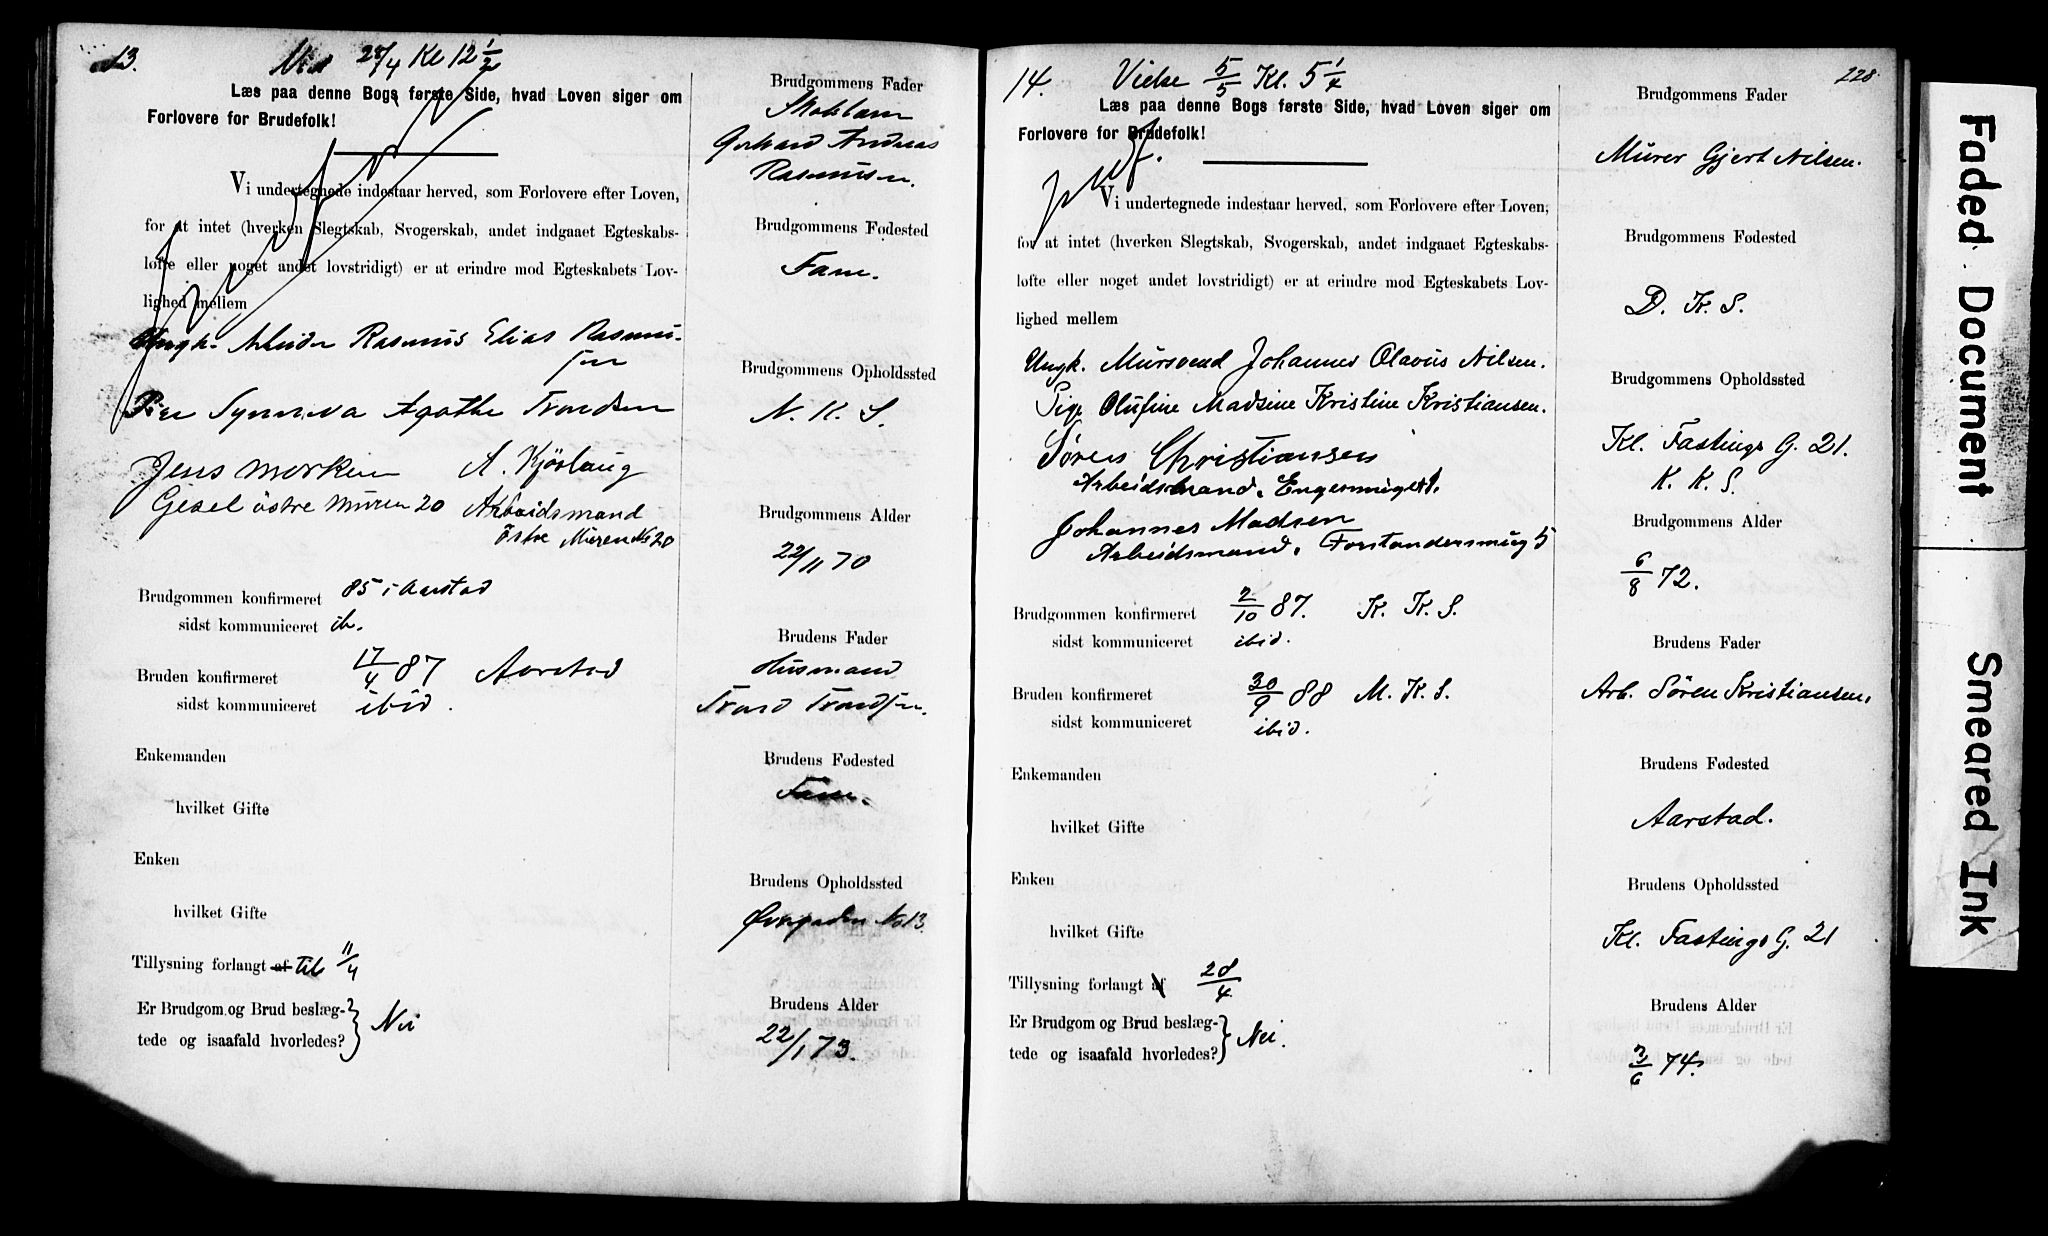 13.
28/4 Kl 12 1/2
Læs paa denne Bogs første Side, hvad Loven siger om
Forlovere for Brudefolk!
Vi undertegnede indestaar herved, som Forlovere efter Loven,
for at intet (hverken Slegtskab, Svogerskab, andet indgaaet Egteskabs-
løfte eller noget andet lovstridigt) er at erindre mod Egteskabets Lov-
lighed mellem
Ungk. Arbeider Rasmus Elias Rasmus-
sen
Pige Synneva Agathe Trondsen
Jens Morken A. Kjörlaug
östre Muren 20 Arbeidsmand
östre Muren No 20
Brudgommen konfirmeret 85 i Aarstad
sidst kommuniceret ib.
Bruden konfirmeret 17/4 87 Aarstad
sidst kommuniceret ibid.
Enkemanden
hvilket Gifte
Enken
hvilket Gifte
Tillysning forlangt af til 11/4
Er Brudgom og Brud beslæg-
tede og isaafald hvorledes? Nei
Brudgommens Fader
Gerhard Andreas
Rasmussen.
Brudgommens Fødested
Fane.
Brudgommens Opholdssted
N. K. S.
Brudgommens Alder
22/11 70
Brudens Fader
Husmand
Trond Trondsen.
Brudens Fødested
Fane.
Brudens Opholdssted
Øvregaden No 13.
Brudens Alder
22/1 73.
14. Vielse 5/5 Kl. 5 1/4
228
Læs paa denne Bogs første Side, hvad Loven siger om
Forlovere for Brudefolk!
Vi undertegnede indestaar herved, som Forlovere efter Loven,
for at intet (hverken Slegtskab, Svogerskab, andet indgaaet Egteskabs-
løfte eller noget andet lovstridigt) er at erindre mod Egteskabets Lov-
lighed mellem
Ungk. Mursvend Johannes Olavus Nilsen.
Pige Olufine Madsine Kristine Kristiansen.
Søren Christiansen
Arbeidsmand. Engensmuget 1.
Johannes Madsen
Arbeidsmand. Forstandersmug 5
Brudgommen konfirmeret 2/10 87. K. K. S.
sidst kommuniceret ibid.
Bruden konfirmeret 30/9 88 M. K. S.
sidst kommuniceret ibid.
Enkemanden
hvilket Gifte
Enken
hvilket Gifte
Tillysning forlangt af 28/4
Er Brudgom og Brud beslæg-
tede og isaafald hvorledes? Nei.
Brudgommens Fader
Murer Gjert Nilsen.
Brudgommens Fødested
D. K. S.
Brudgommens Opholdssted
Kl. Fastings G. 21.
K. K. S.
Brudgommens Alder
6/8 72.
Brudens Fader
Arb. Søren Kristiansen.
Brudens Fødested
Aarstad.
Brudens Opholdssted
Kl. Fastings G. 21
Brudens Alder
3/6 74.
Faded Document
Smeared Ink